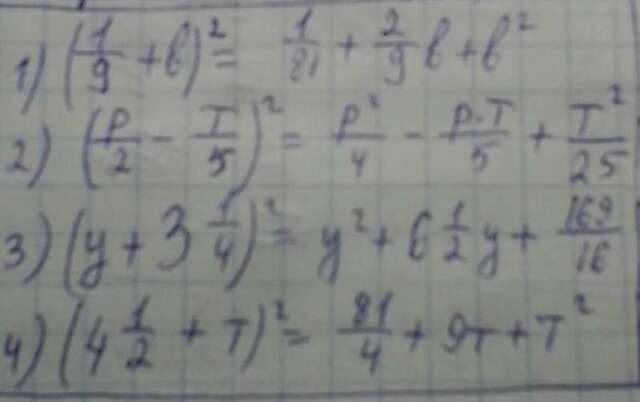 1) (1/9 + b)² = 1/81 + 2/9 b + b²
2) (P/2 - T/5)² = P²/4 - P·T/5 + T²/25
3) (y + 3 1/4)² = y² + 6 1/2 y + 169/16
4) (4 1/2 + T)² = 81/4 + 9T + T²